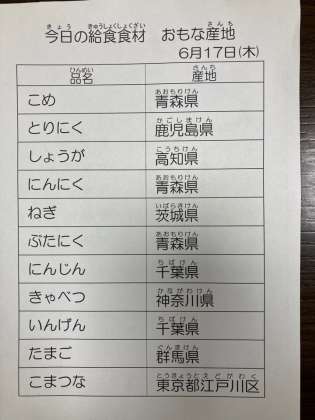 今日の給食食材　おもな産地
6月17日(木)
品名　産地
こめ　青森県
とりにく　鹿児島県
しょうが　高知県
にんにく　青森県
ねぎ　茨城県
ぶたにく　青森県
にんじん　千葉県
きゃべつ　神奈川県
いんげん　千葉県
たまご　群馬県
こまつな　東京都江戸川区